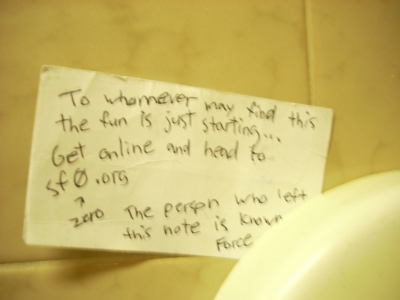 To whomever may find this
the fun is just starting...
Get online and head to
sf0.org
↑
zero The person who left
this note is known
Force